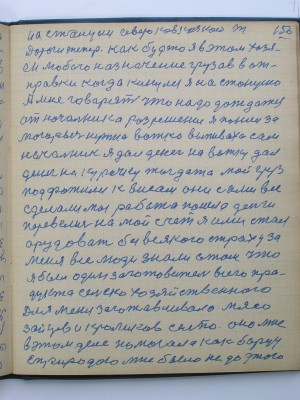 150
на станции северокавказкой ж
Дороги тепер. как будто я в этом хозя
ен любого назначение грузав в от-
правки когда кинулся я на станцию
А мне говарят что надо дожджатся
от началника розрешения я понял за
могарыч нужно вотко выпиваха сам
началник я дал денег на вотку дал
денег на курочку тогда та мой груз
подгрожили к висам они сами все
сделали моя работа только денги
перевели на мой счет я или стал
орудоват бы всякого страху за
меня все люди знали о том что
я был один заготовител всего про-
дукта селско хозяйственного
Для меня заготавливало мясо
зайцов и кроликов село. оно мне
в этом деле помогала как борцу
спиридову мне было не до этого